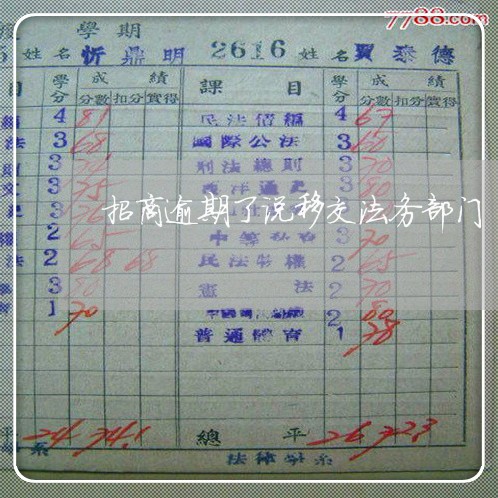 7788.com
學期
姓名 忻鼎明 2616 姓名 賈泰德
目 學分 成績 課目 學分 成績
分數 扣分 實得 分數 扣分 實得
4 81 民法債編 4 67
法 3 68 國際公法 3 60
3 刑法總則 3 70
3 75 西洋通史 3 80
3 76 3
招商逾期了说移交法务部门
2 65 3 70
法 2 68 68 民法物權 2 65
3 80 憲法 2 70
1 70 2 80
普通體育 1 78
平 24 74.1 總平 26 72.3
系 法律學系